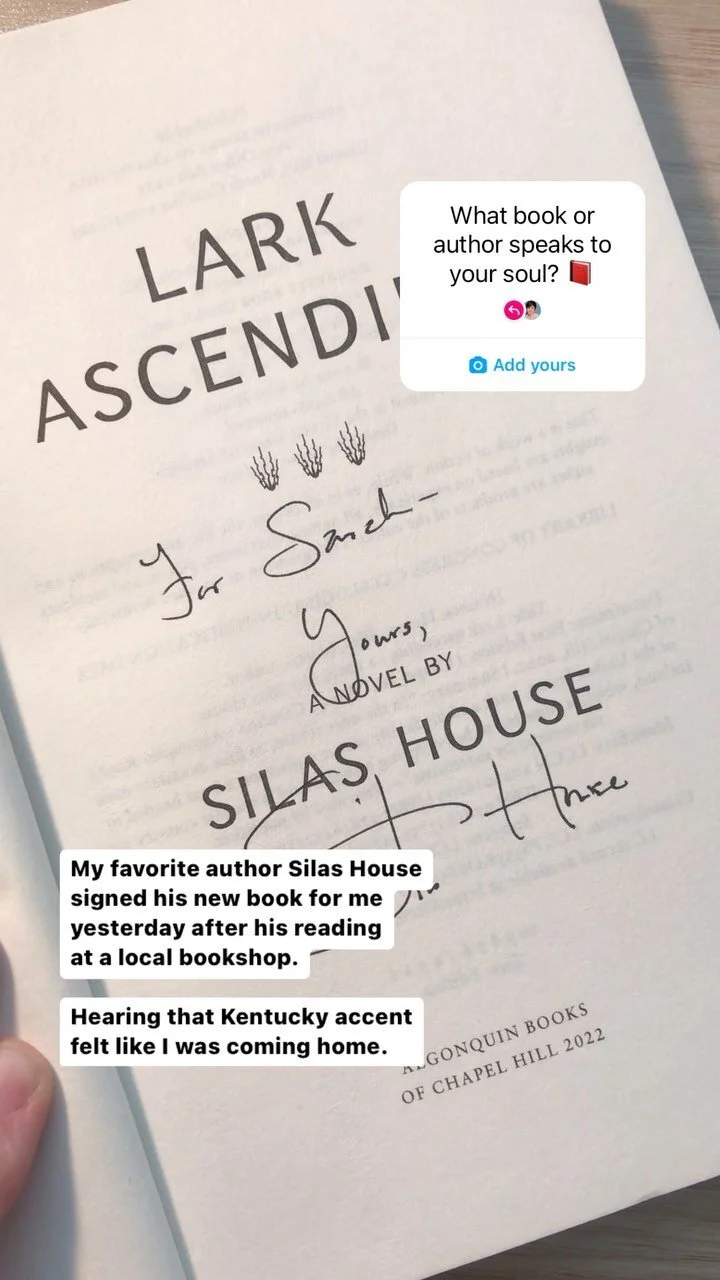 LARK
ASCENDI
What book or
author speaks to
your soul? 📕
Add yours
For Sarah-
Yours,
A NOVEL BY
SILAS HOUSE
My favorite author Silas House
signed his new book for me
yesterday after his reading
at a local bookshop.
Hearing that Kentucky accent
felt like I was coming home.
ALGONQUIN BOOKS
OF CHAPEL HILL 2022